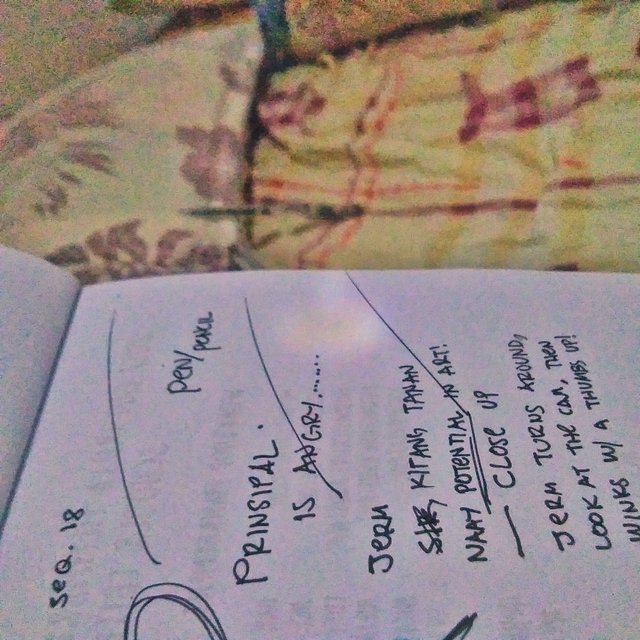 SEQ. 18
PEN/PENCIL
PRINSIPAL.
IS ANGRY.......
JERM
KITANG TAHAN
NAAY POTENTIAL IN ART!
— CLOSE UP
JERM TURNS AROUND,
LOOK AT THE CAM, THEN
WINKS W/ A THUMBS UP!